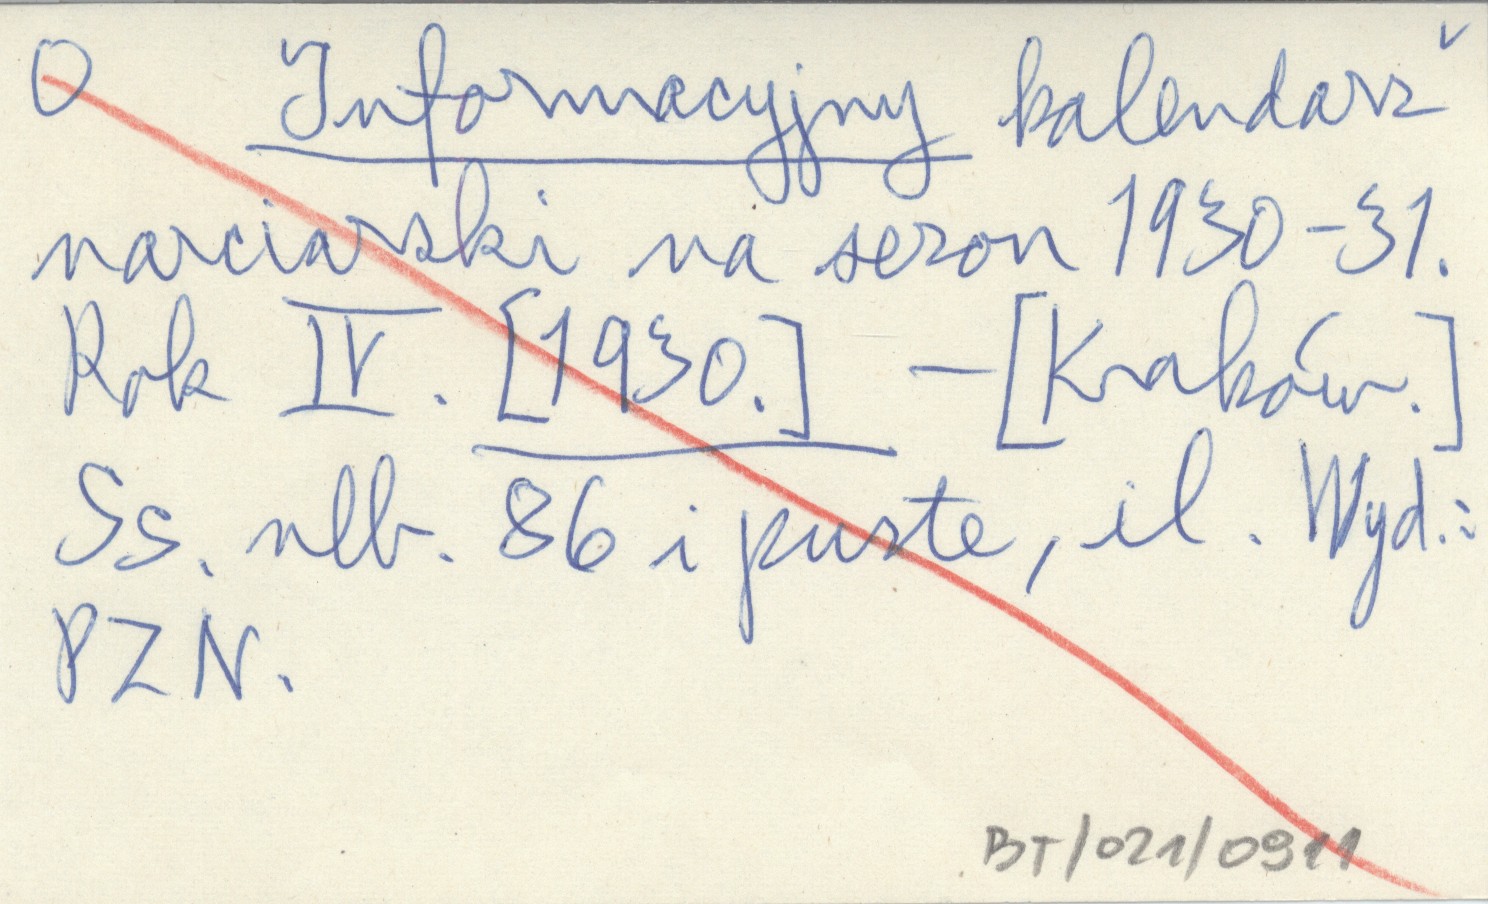 O Informacyjny kalendarz
narciarski na sezon 1930-31.
Rok IV. [1930.] - [Kraków.]
Ss. nlb. 86 i puste, il. Wyd.:
PZN.
BT/021/0911